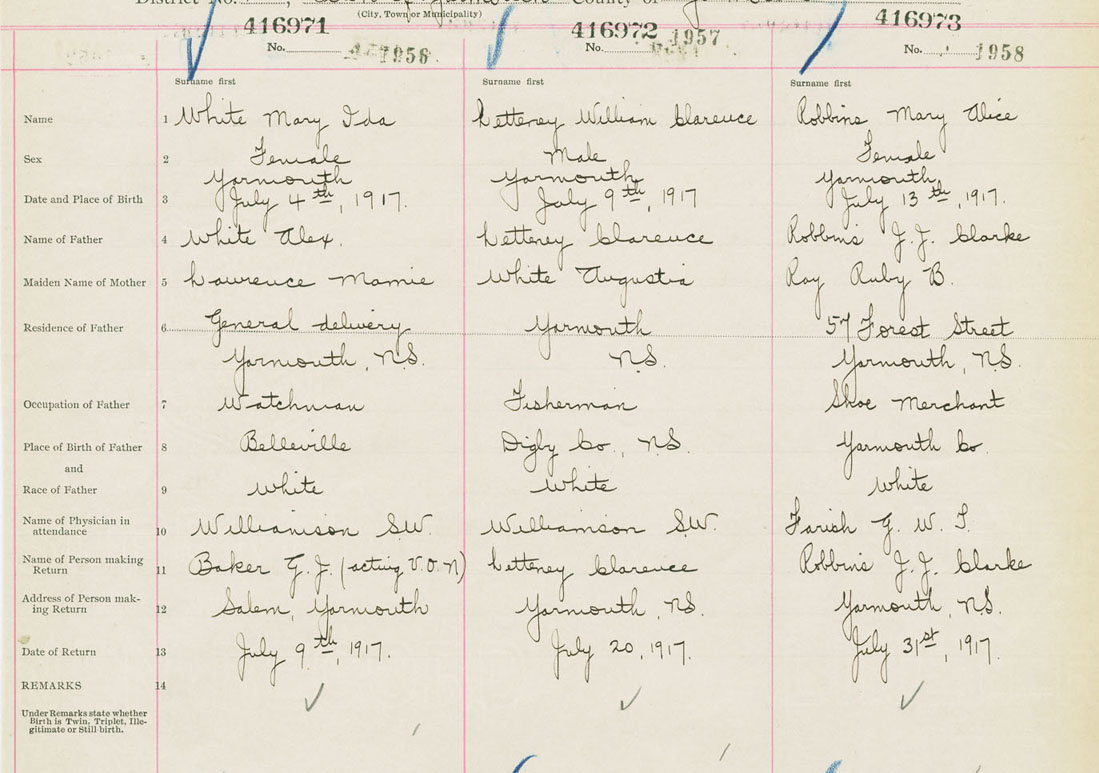 District No. County of
(City, Town or Municipality)
416971 416972 416973
No. 1956 No. 1957 No. 1958
Surname first Surname first Surname first
Name 1 White Mary Ida Letteney William Clarence Robbins Mary Alice
Sex 2 Female Male Female
Yarmouth Yarmouth Yarmouth
Date and Place of Birth 3 July 4th, 1917. July 9th, 1917 July 13th, 1917.
Name of Father 4 White Alex. Letteney Clarence Robbins J. J. Clarke
Maiden Name of Mother 5 Lawrence Mamie White Augustia Ray Ruby B.
Residence of Father 6 General delivery Yarmouth 57 Forest Street
Yarmouth, N.S. N.S. Yarmouth, N.S.
Occupation of Father 7 Watchman Fisherman Shoe Merchant
Place of Birth of Father 8 Belleville Digby Co., N.S. Yarmouth Co.
and
Race of Father 9 White White White
Name of Physician in
attendance 10 Williamson S.W. Williamson S.W. Farish G. W. T.
Name of Person making
Return 11 Baker G. J. (acting V.O.N) Letteney Clarence Robbins J. J. Clarke
Address of Person mak-
ing Return 12 Salem, Yarmouth Yarmouth, N.S. Yarmouth, N.S.
Date of Return 13 July 9th, 1917. July 20, 1917. July 31st, 1917.
REMARKS 14
Under Remarks state whether
Birth is Twin, Triplet, Ille-
gitimate or Still birth.